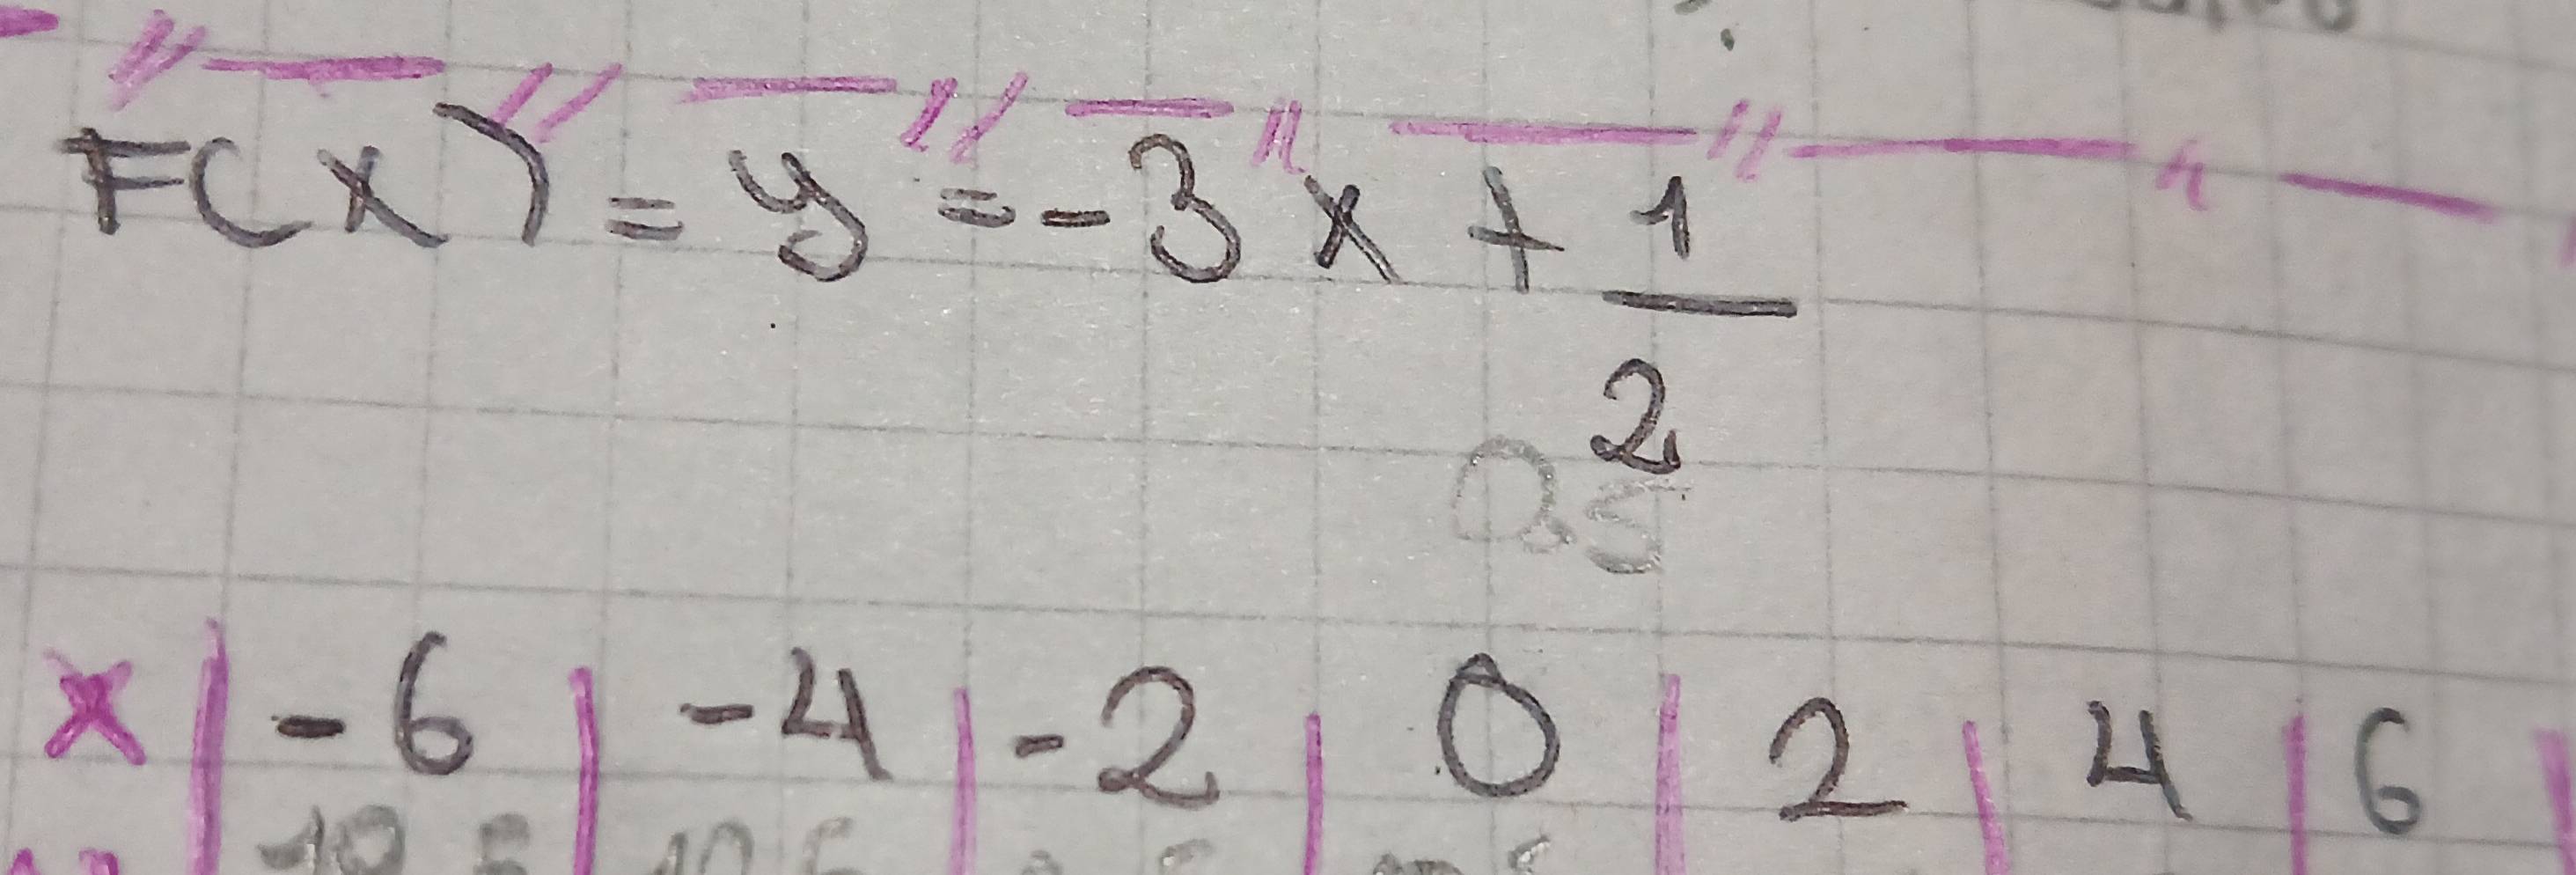 F(x) = y = -3x + 1/2
0.5
x | -6 | -4 | -2 | 0 | 2 | 4 | 6 |